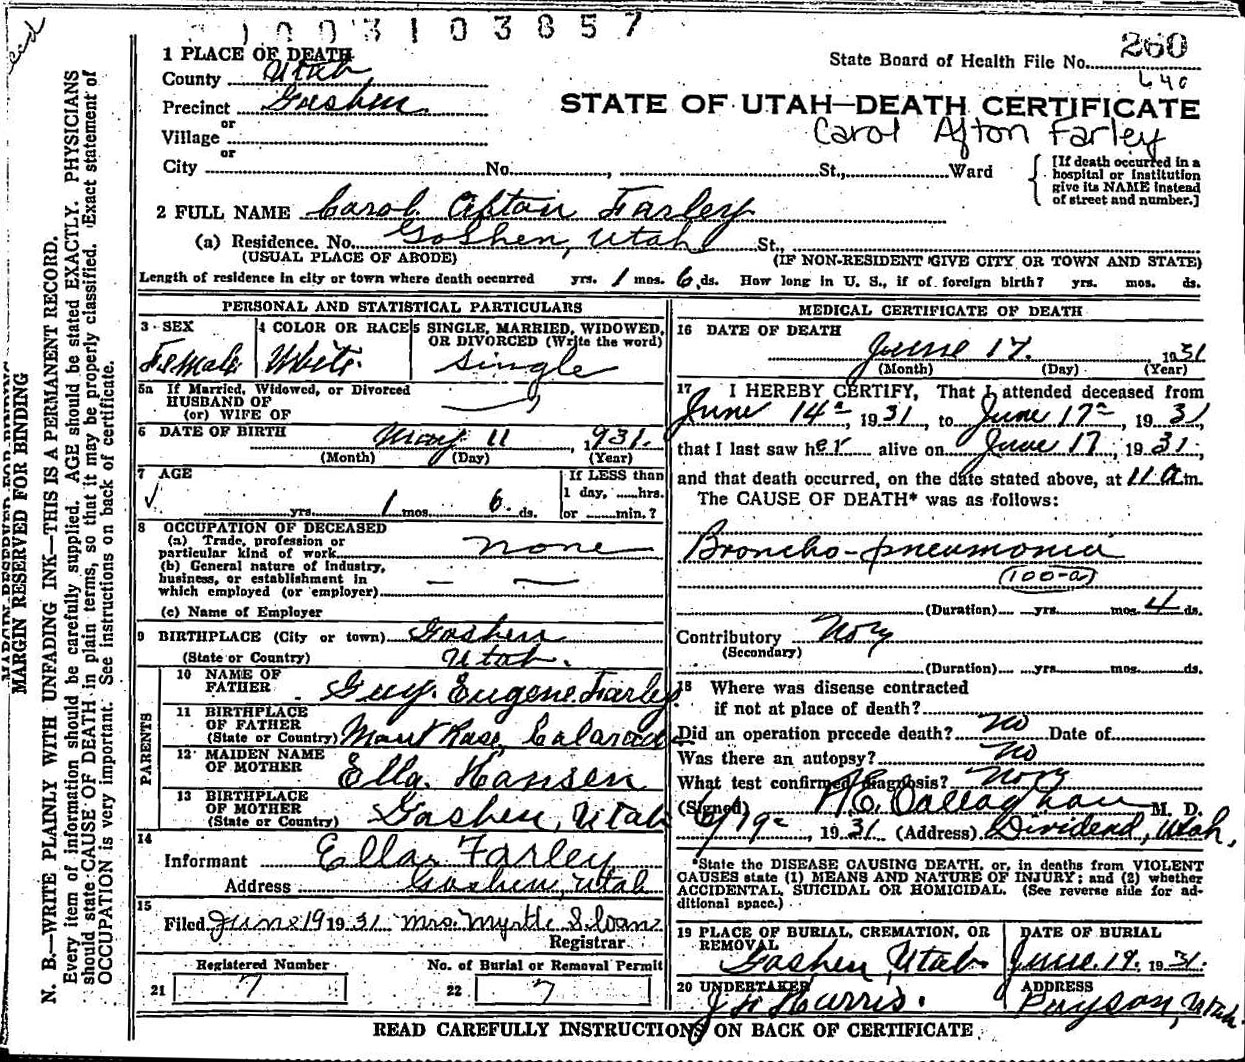 1003103857
1 PLACE OF DEATH
County Utah
Precinct Goshen
or
Village
or
City No. , St., Ward
State Board of Health File No. 260
640
STATE OF UTAH—DEATH CERTIFICATE
Carol Afton Farley
[If death occurred in a hospital or institution give its NAME instead of street and number.]
2 FULL NAME Carol Afton Farley
(a) Residence. No. Goshen, Utah St.,
(USUAL PLACE OF ABODE) (IF NON-RESIDENT GIVE CITY OR TOWN AND STATE)
Length of residence in city or town where death occurred yrs. 1 mos. 6 ds. How long in U. S., if of foreign birth? yrs. mos. ds.
PERSONAL AND STATISTICAL PARTICULARS
3 SEX
Female
4 COLOR OR RACE
White
5 SINGLE, MARRIED, WIDOWED, OR DIVORCED (Write the word)
Single
5a If Married, Widowed, or Divorced
HUSBAND OF
(or) WIFE OF
6 DATE OF BIRTH May 11, 1931.
(Month) (Day) (Year)
7 AGE
yrs. 1 mos. 6 ds.
If LESS than
1 day, hrs.
or min.?
8 OCCUPATION OF DECEASED
(a) Trade, profession or
particular kind of work none
(b) General nature of industry,
business, or establishment in
which employed (or employer)
(c) Name of Employer
9 BIRTHPLACE (City or town) Goshen
(State or Country) Utah.
PARENTS
10 NAME OF FATHER Guy Eugene Farley
11 BIRTHPLACE OF FATHER
(State or Country) Mount Rose, Colorado
12 MAIDEN NAME OF MOTHER Ella Hansen
13 BIRTHPLACE OF MOTHER
(State or Country) Goshen, Utah
14
Informant Ella Farley
Address Goshen, Utah
15
Filed June 19 1931 Mrs. Myrtle Sloan
Registrar
Registered Number
21 7
No. of Burial or Removal Permit
22 7
MEDICAL CERTIFICATE OF DEATH
16 DATE OF DEATH
June 17. 1931
(Month) (Day) (Year)
17 I HEREBY CERTIFY, That I attended deceased from
June 14, 1931, to June 17, 1931,
that I last saw her alive on June 17, 1931,
and that death occurred, on the date stated above, at 11 a m.
The CAUSE OF DEATH* was as follows:
Broncho-pneumonia
(100-a)
(Duration) yrs. mos. 4 ds.
Contributory
(Secondary)
(Duration) yrs. mos. ds.
18 Where was disease contracted
if not at place of death?
Did an operation precede death? no Date of
Was there an autopsy? no
What test confirmed diagnosis?
(Signed) Callaghan M. D.
6/19, 1931 (Address) Dividend, Utah,
*State the DISEASE CAUSING DEATH, or, in deaths from VIOLENT
CAUSES state (1) MEANS AND NATURE OF INJURY; and (2) whether
ACCIDENTAL, SUICIDAL OR HOMICIDAL. (See reverse side for ad-
ditional space.)
19 PLACE OF BURIAL, CREMATION, OR REMOVAL
Goshen, Utah
DATE OF BURIAL
June 19, 1931.
20 UNDERTAKER
Harris.
ADDRESS
Payson, Utah
READ CAREFULLY INSTRUCTIONS ON BACK OF CERTIFICATE.
MARGIN RESERVED FOR BINDING
N. B.—WRITE PLAINLY WITH UNFADING INK—THIS IS A PERMANENT RECORD.
Every item of information should be carefully supplied. AGE should be stated EXACTLY. PHYSICIANS
should state CAUSE OF DEATH in plain terms, so that it may be properly classified. Exact statement of
OCCUPATION is very important. See instructions on back of certificate.